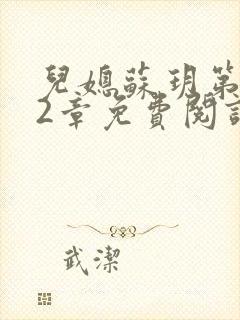 兒媳蘇玥第
2章免費閱讀
武潔